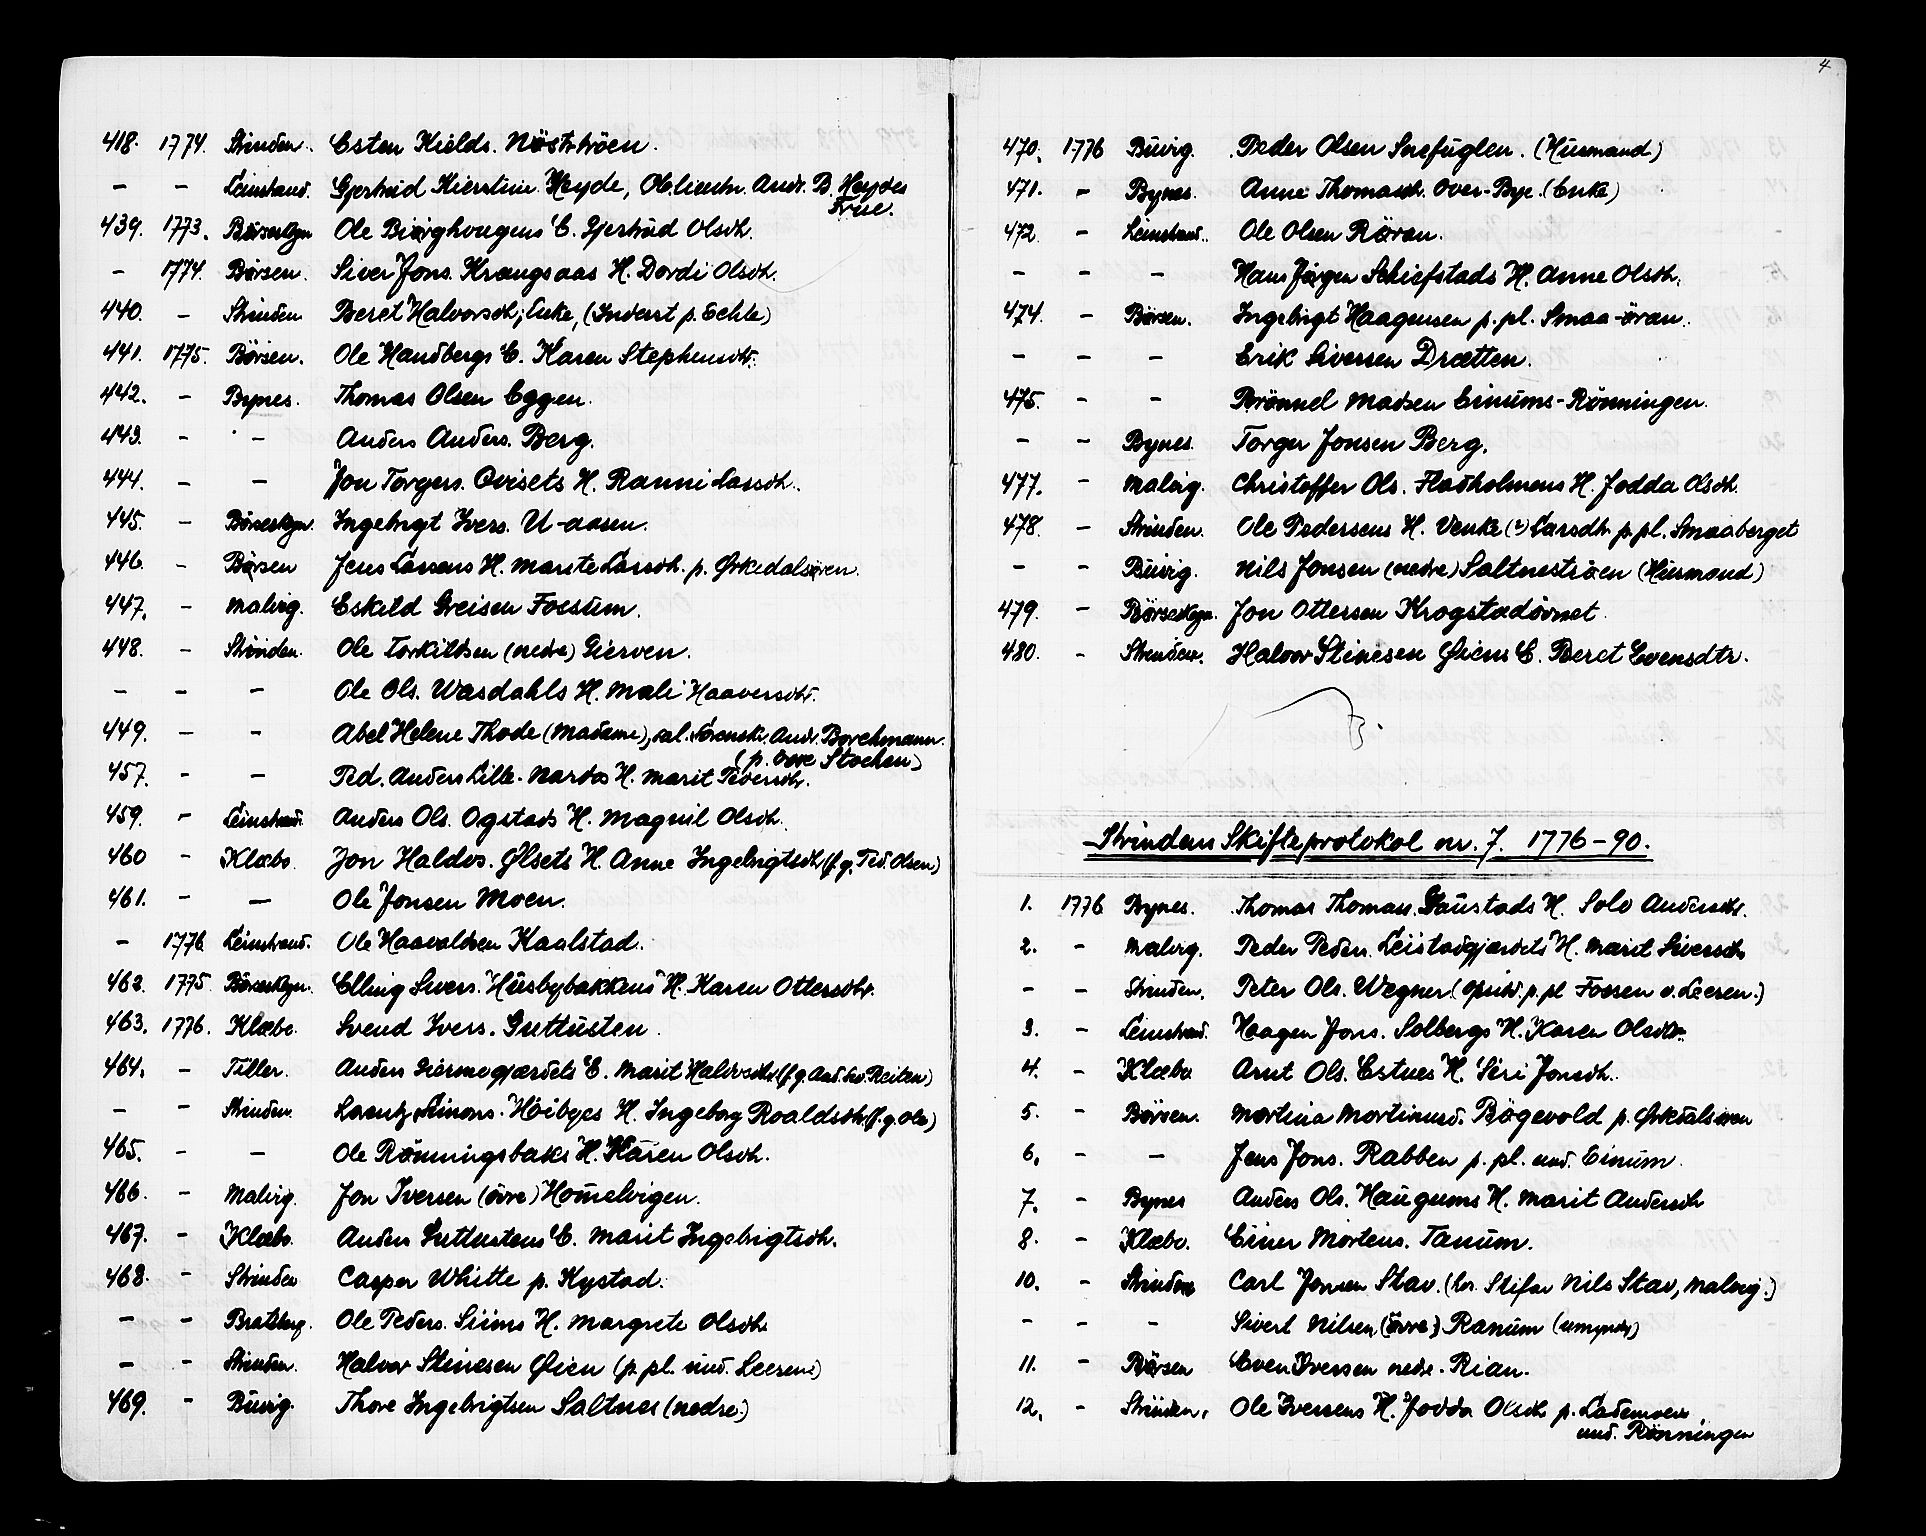 418. 1774. Strinden. Esten Kields. Nöstströen.
– – Leinstrand. Gjertrud Kierstine Heyde, Ob.lieutn. Andr. B. Heydes
Frue.
439. 1773. Börseskgn Ole Biörghougens E. Gjertrud Olsdtr.
– 1774. Börsen. Siver Jons. Krangsaas H. Dordi Olsdtr.
440. – Strinden Beret Halvorsdtr; Enke, (Inderst p. Echle)
441. 1775. Börsen. Ole Handbergs E. Karen Stephensdtr.
442. – Bynes. Thomas Olsen Eggen.
443. – – Anders Anders. Berg.
444. – – Jon Torgers. Qvisets H. Ranni Larsdtr.
445. – Börseskgn. Ingebrigt Ivers. U-aasen.
446. – Börsen Jens Larsens H. Marite Larsdtr. p. Ørkedalsøren.
447. – Malvig. Eskild Greisen Fossum.
448. – Strinden. Ole Torkildsen (nedre) Gierven.
– – – Ole Ols. Wasdahls H. Mali Haaversdtr.
449. – – Abel Helene Thode (Madame), sal. Sorenskr. Andr. Borchmann.
(p. övre Stochan)
457. – – Ped. Anders Lille-Nardos H. Marit Pedersdtr.
459. – Leinstrand. Anders Ols. Ogstads H. Magnil Olsdtr.
460 – Klæbo. Jon Haldos. Ølsets H. Anne Ingebrigtsdtr (f.g. Ped. Olsen)
461. – – Ole Jonsen Moen.
– 1776. Leinstrand. Ole Haavaldsen Kaalstad.
462. 1775. Börseskgn. Elling Sivers. Husbybakkens H. Karen Ottersdtr.
463. 1776. Klæbo. Svend Ivers. Gruttusten.
464. – Tiller. Anders Giermogjærdets E. Marit Halvorsdtr (f.g. And. Reiten)
– – Strinden. Lorentz Simons. Höibyes H. Ingeborg Roaldsdtr (f.g. Ole)
465. – – Ole Rönningsbaks H. Karen Olsdtr.
466. – Malvig. Jon Iversen (övre) Homelvigen.
467. – Klæbo. Anders Gruttustens E. Marit Ingebrigtsdtr.
468. – Strinden Casper Whitte p. Kystad.
– – Bratsberg. Ole Peders. Siims H. Margrete Olsdtr
– – Strinden. Halvor Stinesen Øien (p. pl. und. Leeren)
469. – Buvig. Thore Ingebrigtsen Saltnes (nedre)
4
470. 1776 Buvig. Peder Olsen Snefuglen. (Husmand)
471. – Bynes. Anne Thomasdtr. Over-Bye. (Enke)
472. – Leinstrand. Ole Olsen Röran.
– – – Hans Jörgen Schiefstads H. Anne Olsdtr.
474. – Börsen. Ingebrigt Haagensen p. pl. Smaa-öran.
– – – Erik Siversen Drætten.
475. – – Brönnel Madsen Einums-Rönningen.
– – Bynes. Torger Jonsen Berg.
477. – Malvig. Christoffer Ols. Fladholmens H. Jodda Olsdtr.
478. – Strinden. Ole Pedersens H. Venke (?) Larsdtr. p. pl. Smaaberget
– – Buvig. Nils Jonsen (nedre) Saltneströen (Husmand)
479. – Börseskgn. Jon Ottersen Krogstadövnet.
480. – Strinden. Halvor Stinesen Øiens E. Beret Evensdtr.
Strindens Skifteprotokol nr. 7. 1776–90.
1. 1776 Bynes. Thomas Thomass. Gaustads H. Solo Andersdtr.
2. – Malvig. Peder Peders. Leistadgjærdets H. Marit Siversdtr
– – Strinden. Peter Ols. Wegner (p. pl Fossen v. Leeren.)
3. – Leinstrand. Haagen Jons. Solbergs H. Karen Olsdtr.
4. – Klæbo. Arnt Ols. Estnes H. Siri Jonsdtr.
5. – Börsen. Martina Mortinusd. Bögevold p. Ørkdalsøren
6. – – Jens Jons. Rabben p. pl. und. Einum.
7. – Bynes Anders Ols. Haugums H. Marit Andersdtr
8. – Klæbo. Einer Mortens. Tanum.
10. – Strinden Carl Jonsen Stav. (hs. Stifar Nils Stav, Malvig.)
– – – Sivert Nilsen (övre) Ranum (umyndig)
11. – Börsen Even Iversen nedre Rian.
12. – Strinden. Ole Iversens H. Jodda Olsdtr p. Lademoen
und. Rönningen